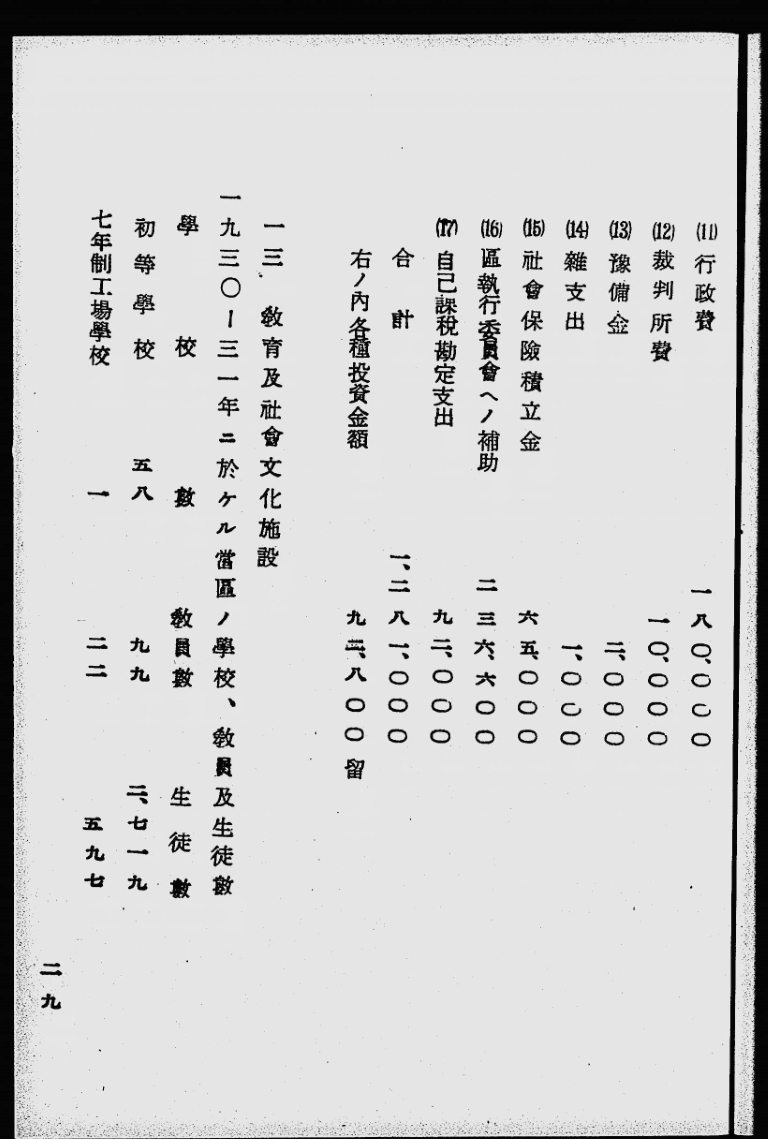 (11) 行政費 一八〇、〇〇〇
(12) 裁判所費 一〇、〇〇〇
(13) 豫備金 二、〇〇〇
(14) 雜支出 一、〇〇〇
(15) 社會保險積立金 六五、〇〇〇
(16) 區執行委員會ヘノ補助 二三六、六〇〇
(17) 自己課税勘定支出 九二、〇〇〇
合計 一、二八一、〇〇〇
右ノ內各種投資金額 留
一三 敎育及社會文化施設
一九三〇ー三一年ニ於ケル當區ノ學校、敎員及生徒數
學校 數 敎員數 生徒數
初等學校 五八 九九 二、七一九
七年制工場學校 一 二二 五九七
二九